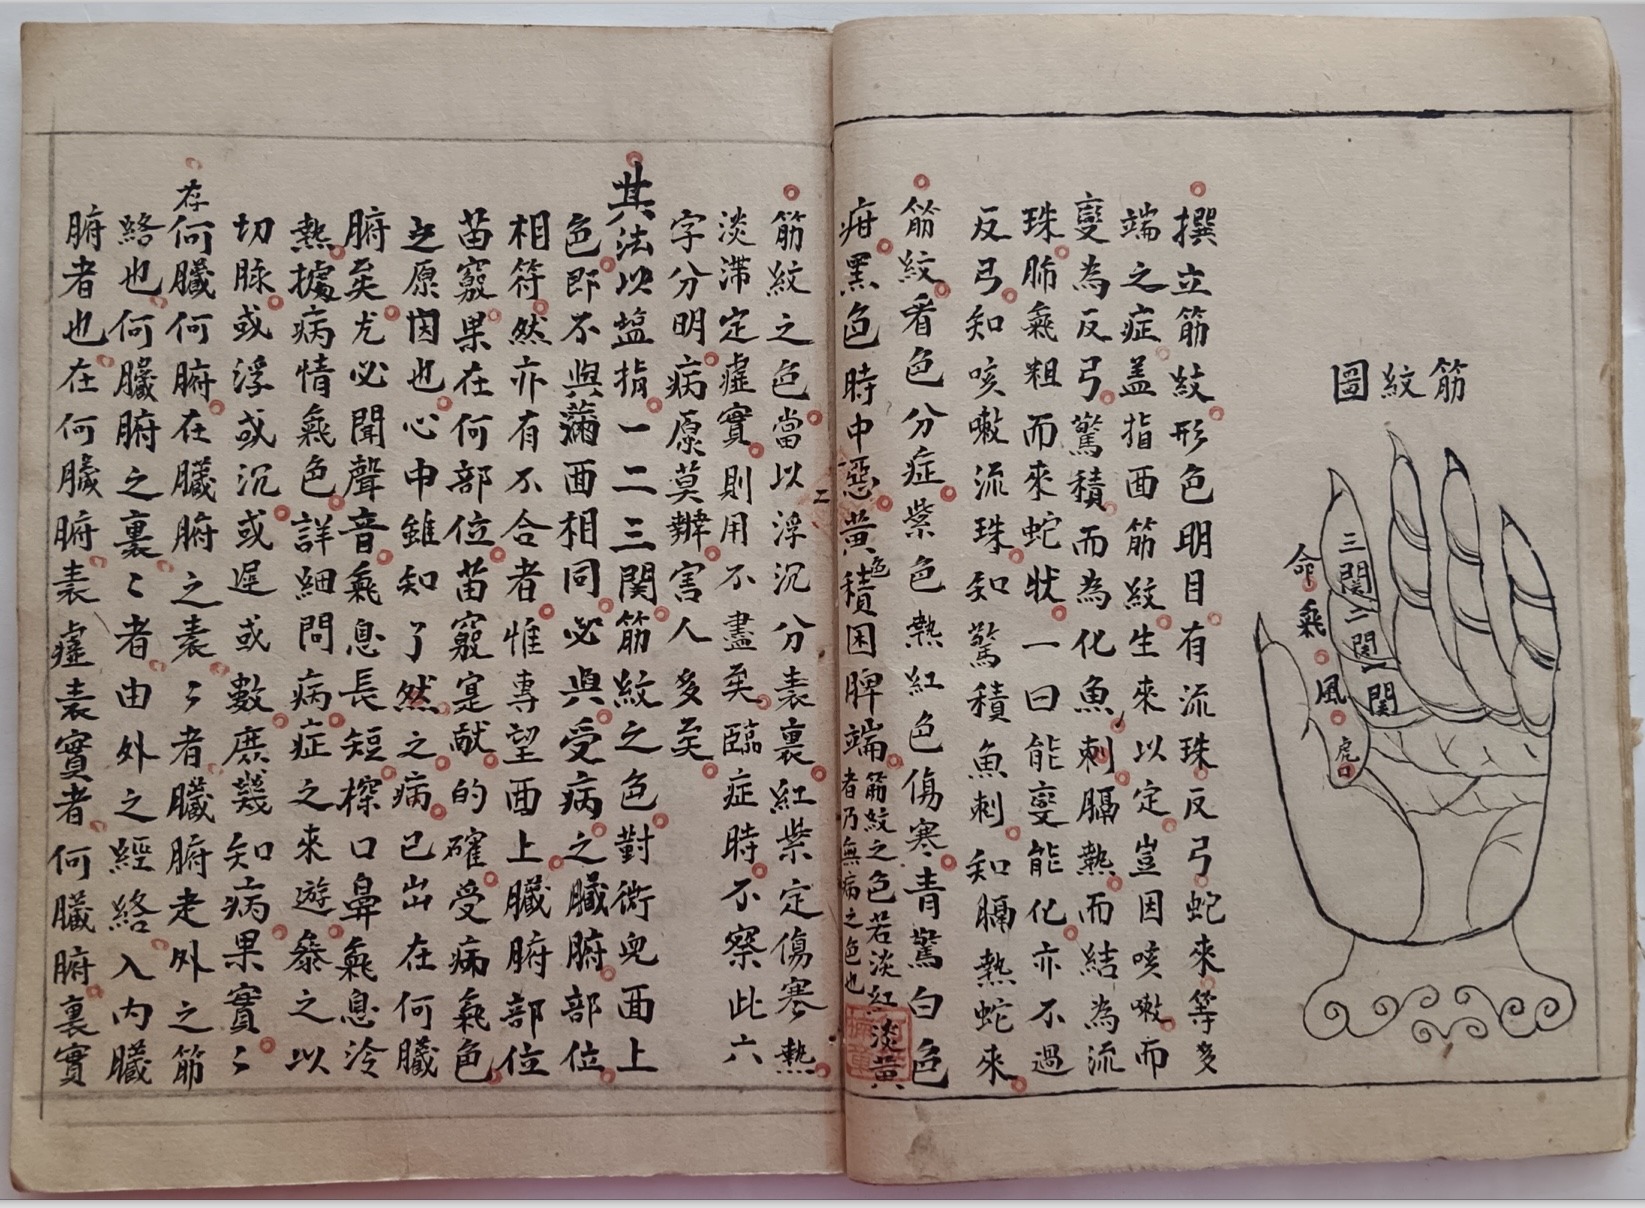 筋紋圖
三關
二關
一關
命
氣
風
虎口
撰立筋紋形色明目有流珠反弓蛇來等多
端之症盖指面筋紋生來以定豈因咳嗽而
變為反弓驚積而為化魚刺膈熱而結為流
珠肺氣粗而來蛇狀一曰能變能化亦不過
反弓知咳嗽流珠知驚積魚刺知膈熱蛇來
筋紋看色分症紫色熱紅色傷寒青驚白色
疳黑色時中惡黃色積困脾端筋紋之色若淡紅淡黃
者乃無病之色也
筋紋之色當以浮沉分表裏紅紫定傷寒熱
淡滯定虛實則用不盡矣臨症時不察此六
字分明病原莫辦害人多矣
其法以塩指一二三関筋紋之色對衝兒面上
色即不與滿面相同必與受病之臟腑部位
相符然亦有不合者惟專望面上臟腑部位
苗竅果在何部位苗竅寔献的確受病氣色
之原因也心中雖知了然之病已出在何臟
腑矣尤必聞聲音氣息長短探口鼻氣息冷
熱據病情氣色詳細問病症之來遊叅之以
切脉或浮或沉或遲或數庶幾知病果實〻
存何臟何腑在臟腑之表〻者臟腑走外之筋
絡也何臟腑之裏〻者由外之經絡入內臟
腑者也在何臟腑表虛表實者何臟腑裏實